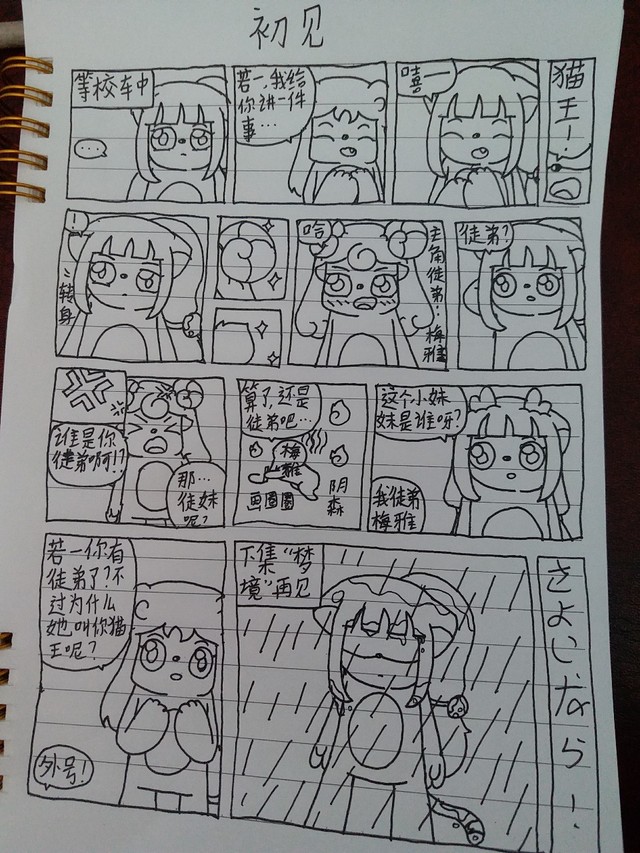 初见
等校车中
...
若一,我给
你讲一件
事…
嘻一
猫
王!
!
转
身
哈
主
角
徒
弟
:
梅
雅
徒弟?
谁是你
徒弟啊!?
那…
徒妹
呢?
算了,还是
徒弟吧…
梅
雅
画圈圈
阴
森
这个小妹
妹是谁呀?
我徒弟
梅雅
若一你有
徒弟了?不
过为什么
她叫你猫
王呢?
外号!
下集“梦
境”再见
さ
よ
い
な
ら
!